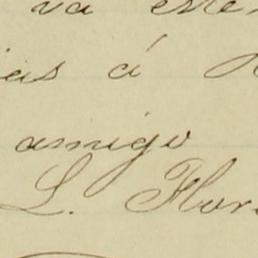 va este
ias á
amigo
L. Flor